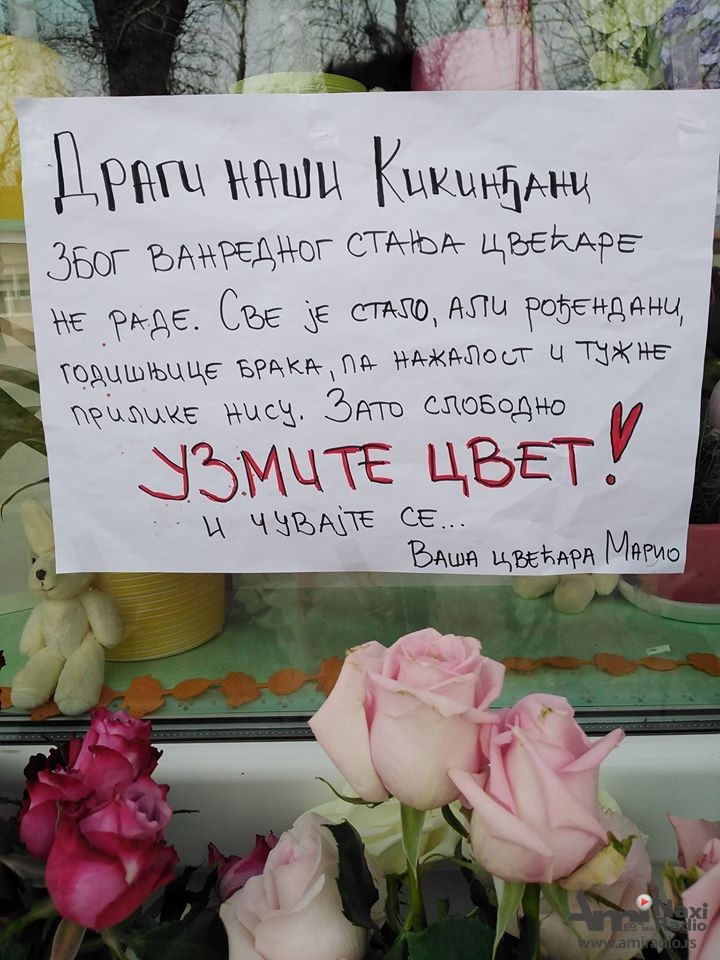 Драги наши Кикинђани
због ванредног стања цвећаре
не раде. Све је стало, али рођендани,
годишњице брака, па нажалост и тужне
прилике нису. Зато слободно
УЗМИТЕ ЦВЕТ!
и чувајте се...
Ваша цвећара Марио
Ami Naxi
Radio
www.amiradio.rs